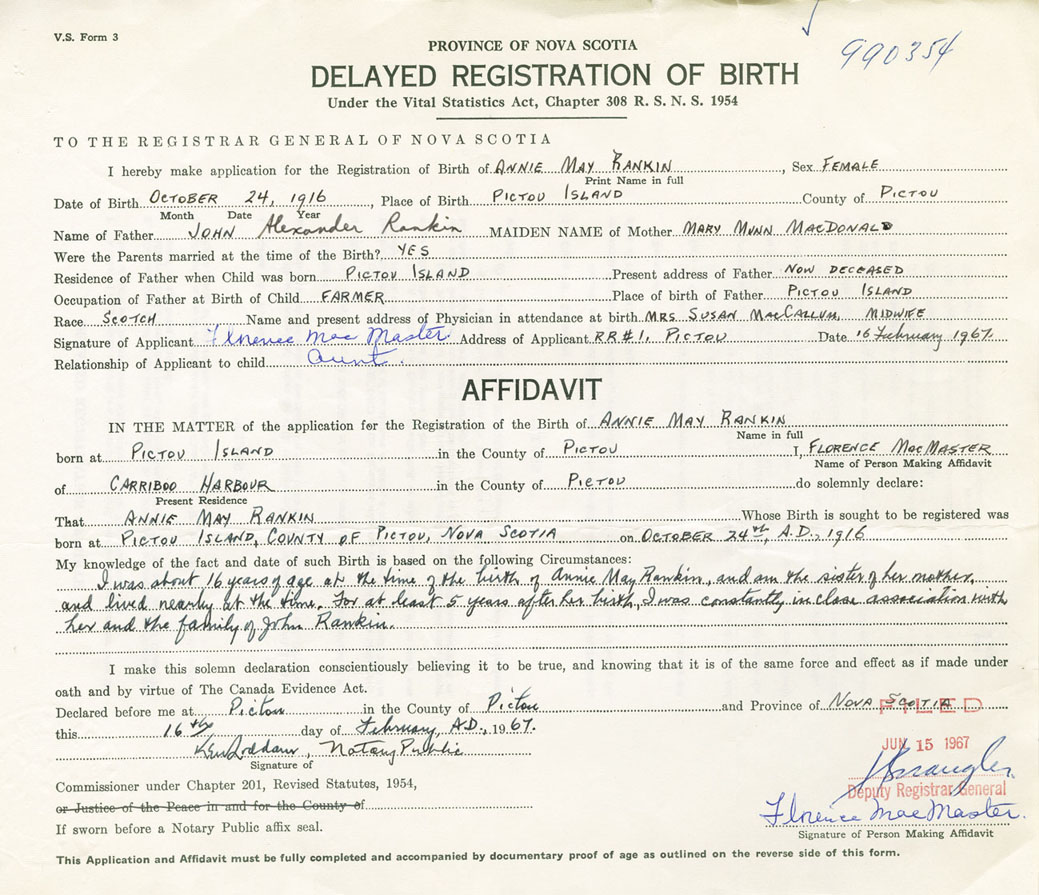 V.S. Form 3
990354
PROVINCE OF NOVA SCOTIA
DELAYED REGISTRATION OF BIRTH
Under the Vital Statistics Act, Chapter 308 R. S. N. S. 1954
TO THE REGISTRAR GENERAL OF NOVA SCOTIA
I hereby make application for the Registration of Birth of ANNIE MAY RANKIN, Sex FEMALE
Print Name in full
Date of Birth OCTOBER 24, 1916, Place of Birth PICTOU ISLAND County of PICTOU
Month Date Year
Name of Father JOHN Alexander Rankin MAIDEN NAME of Mother MARY MUNN MACDONALD
Were the Parents married at the time of the Birth? YES
Residence of Father when Child was born PICTOU ISLAND Present address of Father NOW DECEASED
Occupation of Father at Birth of Child FARMER Place of birth of Father PICTOU ISLAND
Race SCOTCH Name and present address of Physician in attendance at birth MRS SUSAN MACCALLUM, MIDWIFE
Signature of Applicant Florence MacMaster Address of Applicant RR#1, PICTOU Date 16 February 1967.
Relationship of Applicant to child Aunt.
AFFIDAVIT
IN THE MATTER of the application for the Registration of the Birth of ANNIE MAY RANKIN
Name in full
born at PICTOU ISLAND in the County of PICTOU I, FLORENCE MACMASTER
Name of Person Making Affidavit
of CARRIBOO HARBOUR in the County of PICTOU do solemnly declare:
Present Residence
That ANNIE MAY RANKIN Whose Birth is sought to be registered was
born at PICTOU ISLAND, COUNTY OF PICTOU, NOVA SCOTIA on OCTOBER 24th, A.D., 1916
My knowledge of the fact and date of such Birth is based on the following Circumstances:
I was about 16 years of age at the time of the birth of Annie May Rankin, and am the sister of her mother,
and lived nearby at the time. For at least 5 years after her birth, I was constantly in close association with
her and the family of John Rankin.
I make this solemn declaration conscientiously believing it to be true, and knowing that it is of the same force and effect as if made under
oath and by virtue of The Canada Evidence Act.
Declared before me at Pictou in the County of Pictou and Province of NOVA SCOTIA
FILED
this 16th day of February, A.D., 1967.
JUN 15 1967
Notary Public
Signature of
Commissioner under Chapter 201, Revised Statutes, 1954,
Deputy Registrar General
or Justice of the Peace in and for the County of
Florence MacMaster.
If sworn before a Notary Public affix seal.
Signature of Person Making Affidavit
This Application and Affidavit must be fully completed and accompanied by documentary proof of age as outlined on the reverse side of this form.